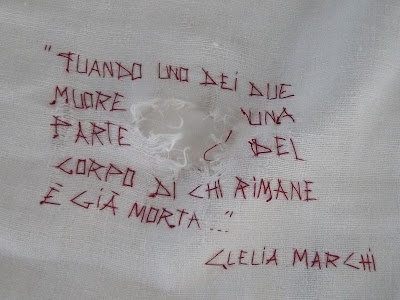 "QUANDO UNO DEI DUE
MUORE UNA
PARTE DEL
CORPO DI CHI RIMANE
È GIÀ MORTA..."
CLELIA MARCHI